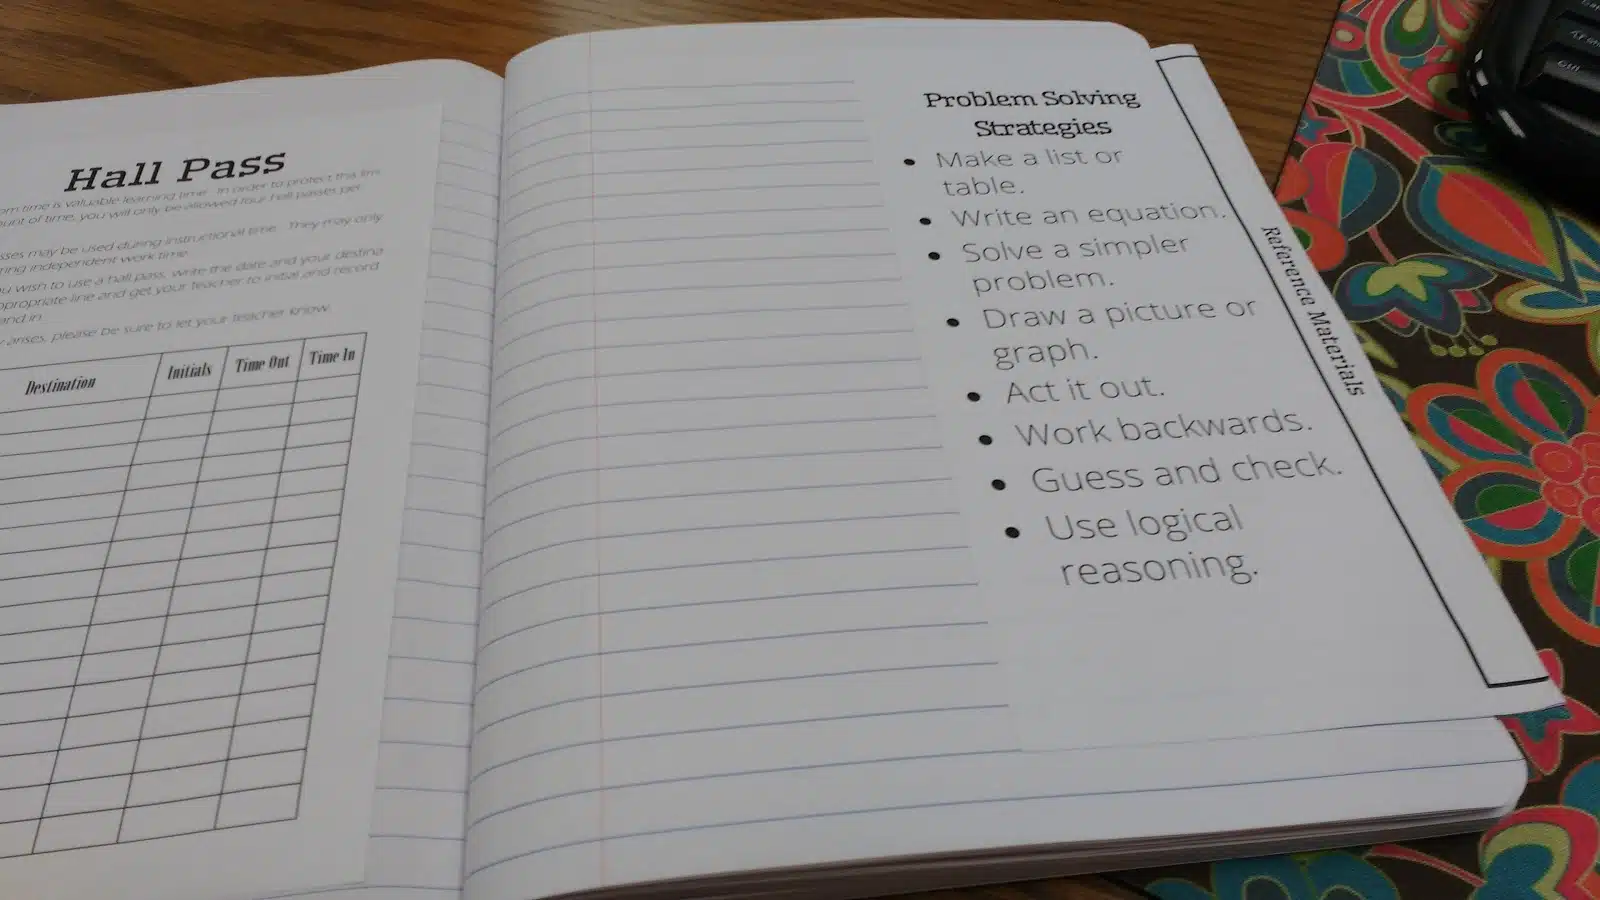 Hall Pass
time is valuable learning time. In order to protect this
of time, you will only be allowed four hall passes per
may be used during instructional time. They may only
independent work time.
wish to use a hall pass, write the date and your
line and get your teacher to initial and record
and in.
arises, please be sure to let your teacher know.
Destination Initials Time Out Time In
Problem Solving
Strategies
• Make a list or
table.
• Write an equation.
• Solve a simpler
problem.
• Draw a picture or
graph.
• Act it out.
• Work backwards.
• Guess and check.
• Use logical
reasoning.
Reference Materials